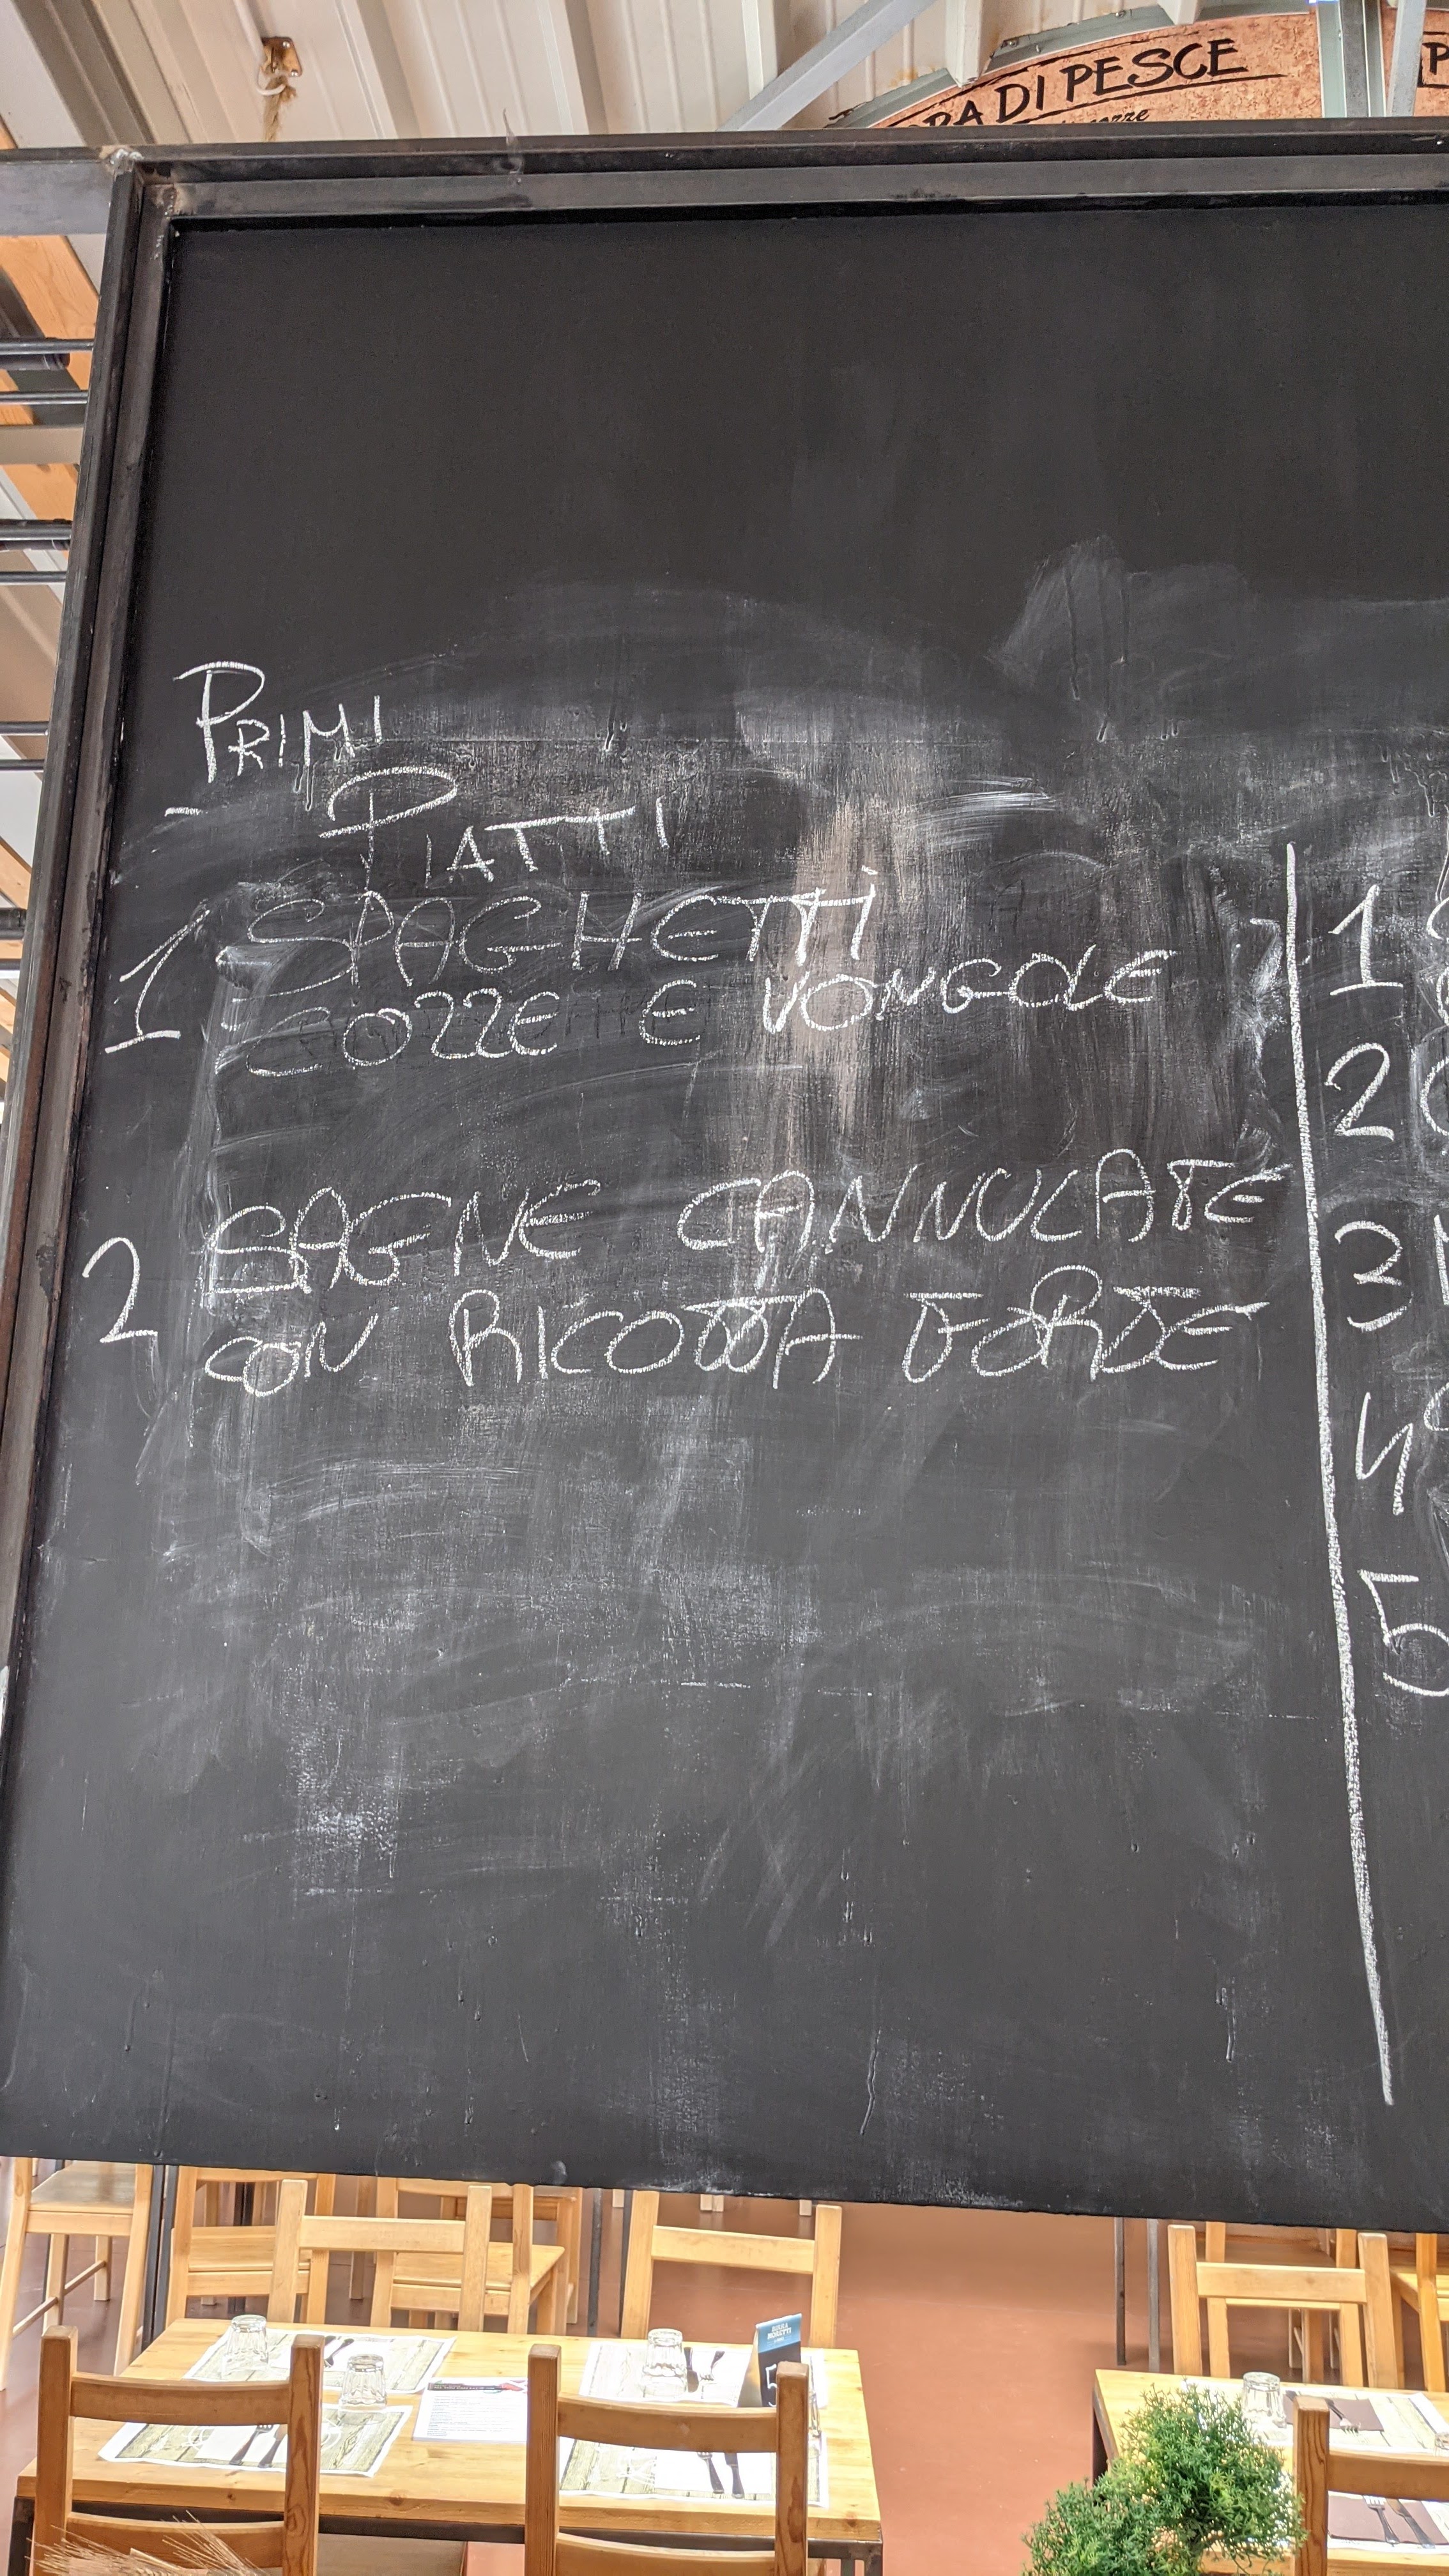 DI PESCE
PRIMI
- PIATTI
1 SPAGHETTI
COZZE E VONGOLE
2 SAGNE CANNULATE
CON RICOTTA FORTE
1
2
3
4
5